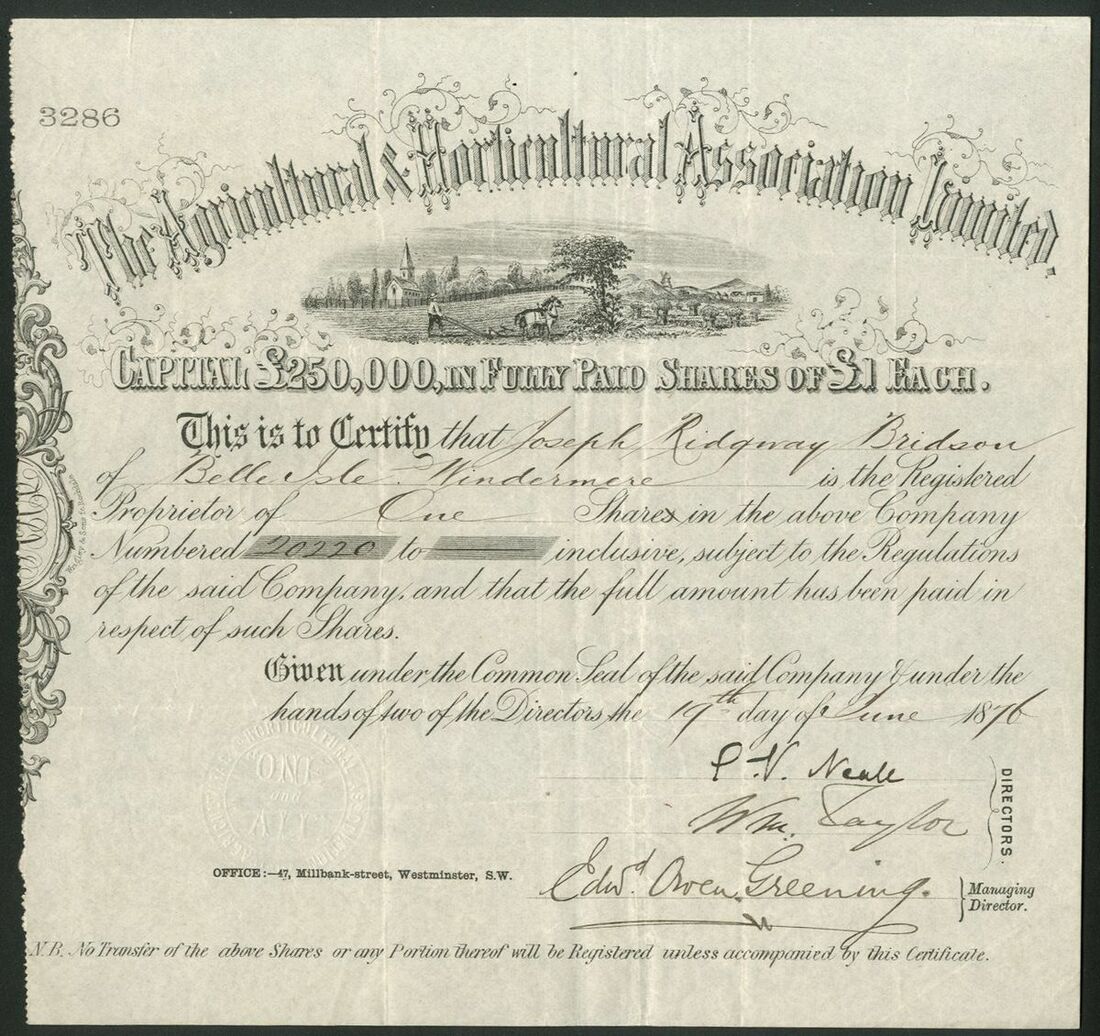 3286
The Agricultural & Horticultural Association Limited.
CAPITAL £250,000, IN FULLY PAID SHARES OF £1 EACH.
This is to Certify that Joseph Ridgway Bridson
of Belle Isle Windermere is the Registered
Proprietor of One Shares in the above Company
Numbered 20220 to inclusive, subject to the Regulations
of the said Company, and that the full amount has been paid in
respect of such Shares.
Given under the Common Seal of the said Company & under the
hands of two of the Directors the 19th day of June 1876
E. V. Neale
Wm. Taylor
DIRECTORS.
OFFICE:—47, Millbank-street, Westminster, S.W.
Edwd. Owen Greening.
Managing
Director.
N.B. No Transfer of the above Shares or any Portion thereof will be Registered unless accompanied by this Certificate.